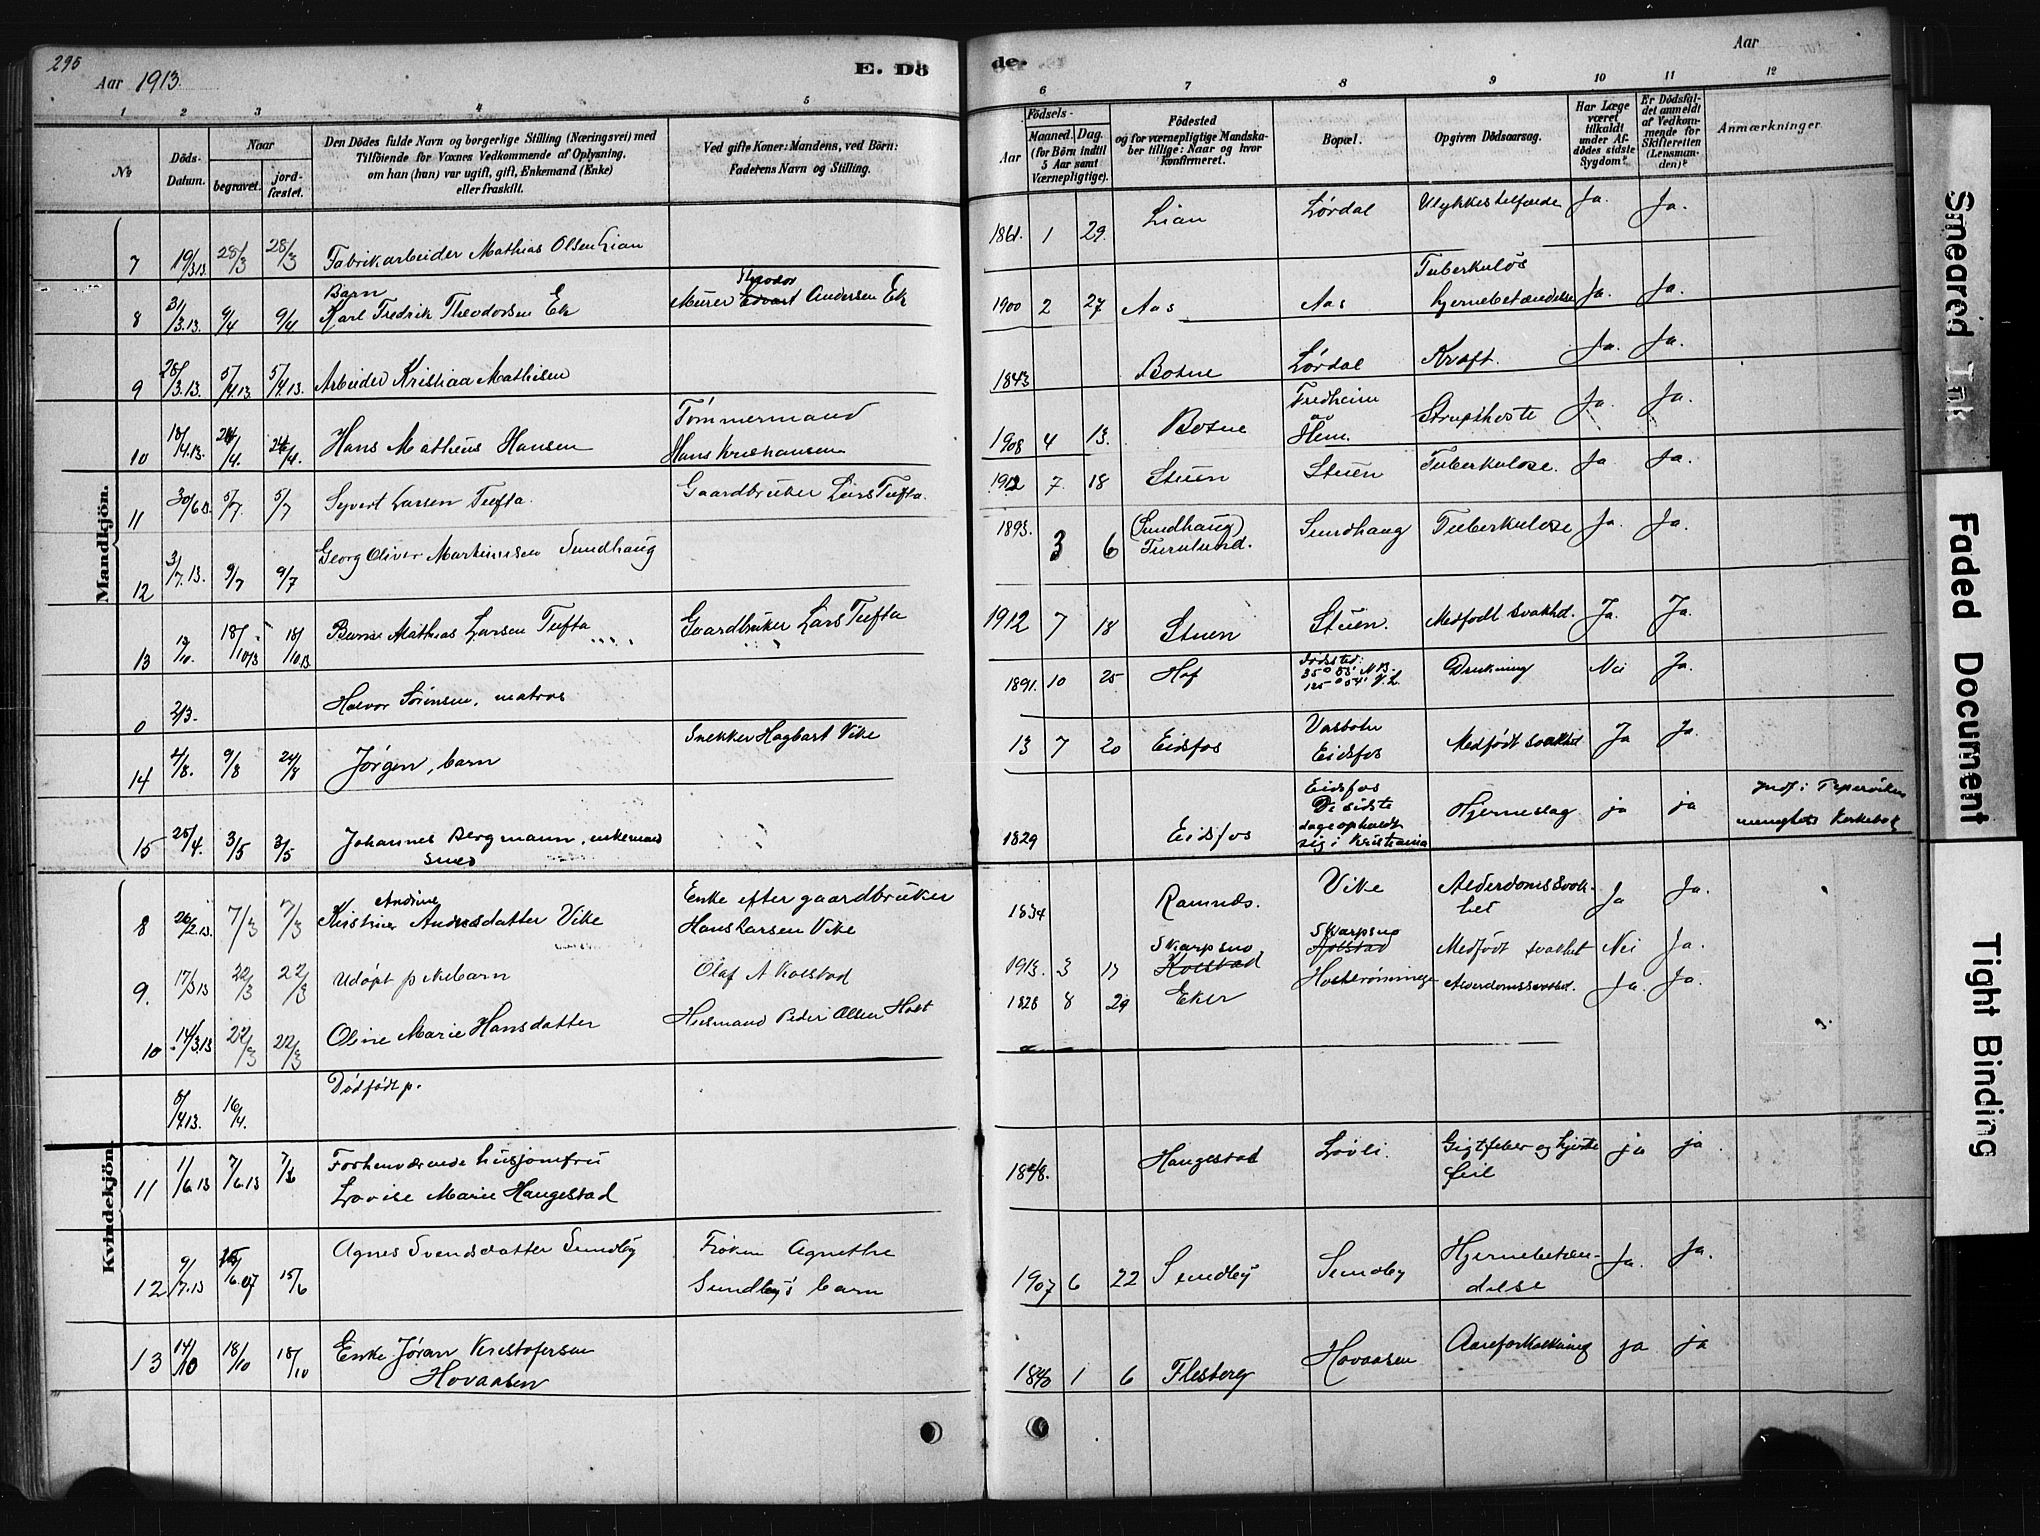 295
Aar 1913
E. Dö
de.
Aar
1 2 3 4 5 6 7 8 9 10 11 12
No
Döds-
Datum.
Naar
begravet.
jord-
fæstet.
Den Dödes fulde Navn og borgerlige Stilling (Næringsvei) med
Tilföiende for Voxnes Vedkommende af Oplysning,
om han (hun) var ugift, gift, Enkemand (Enke)
eller fraskilt.
Ved gifte Koner: Mandens, ved Börn:
Faderens Navn og Stilling.
Födsels-
Aar
Maaned. Dag.
(for Börn indtil
5 Aar samt
Værnepligtige).
Födested
og for værnepligtige Mandska-
ber tillige: Naar og hvor
konfirmeret.
Bopæl.
Opgiven Dödsaarsag.
Har Læge
været
tilkaldt
under Af-
dödes sidste
Sygdom?
Er Dödsfal-
det anmeldt
af Vedkom-
mende for
Skifteretten
(Lensman-
den)?
Anmærkninger.
Mandkjön.
7 19/3 13 28/3 28/3 Fabrikarbeider Mathias Olsen Lian 1861. 1 29. Lian Lørdal Ulykkestilfælde Ja. Ja.
Barn Theodor Tuberkuløs
8 31/3.13. 9/4 9/4 Karl Fredrik Theodorsen Ek Murer Edvart Andersen Ek 1900 2 27 Aas Aas hjernebetændelse Ja. Ja.
9 28/3.13. 5/4.13. 5/4.13. Arbeider Kristian Mathisen 1843 Botne Lørdal Kræft. Ja. Ja.
Tømmermand Fredheim
10 18/4.13. 24/4. 24/4. Hans Matheus Hansen Hans Kristiansen 1908 4 13. Botne av Hem. Strupehoste Ja. Ja.
11 30/6 13. 5/7. 5/7 Syvert Larsen Tufta. Gaardbruker Lars Tufta. 1912 7. 18 Stuen Stuen Tuberkulose. Ja. Ja.
12 3/7.13. 9/7 9/7 Georg Oliver Martinusen Sundhaug 1893. 3 6 (Sundhaug) Sundhaug Tuberkulose Ja. Ja.
13 18/10/13 18/10.13. Mathias Larsen Tufta Gaardbruker Lars Tufta 1912 7 18 Stuen Stuen. Medfødt svakhd. Ja. Ja.
0 2/3. Halvor Sørensen, matros 1891. 10 25 Hof Dødssted: Drukning Nei Ja.
14 4/8. 9/8 24/8 Jørgen, barn Snekker Hagbart Vike 13 7 20 Eidsfos Vasbotn Eidsfos Medfødt svakhed Ja Ja.
15 25/4. 3/5 3/5 Johannes Bergmann, enkemand 1829 Eidsfos Eidsfos Hjerneslag ja ja
smed
De sidste
dage opholdt
sig i Kristiania
Indf. i Pipervikens
menigheds kirkebok
Kvindekjön.
Andrine Enke efter gaardbruker
8 26/2.13. 7/3 7/3 Kristine Andersdatter Vike Hans Larsen Vike 1834 Ramnæs. Vike Alderdomssvak-
het Ja Ja.
9. 17/3 13 22/3 22/3 Udøpt pikebarn Olaf A Kolstad 1913. 3 17 Skarpsno Kolstad Skarpsno Kolstad Medfødt svakhet Nei Ja.
10 14/3.13 22/3 22/3 Oline Marie Hansdatter Husmand Peder Olsen Holt 1828 8 29 Eker Alderdomssvakhd. Ja. Ja.
8/4 13. 16/4. Dødfødt p.
11 1/6.13 7/6.13 Forhenværende husjomfru
Lovise Marie Haugestad 1848. Haugestad Løvli. Gigtfeber og hjerte
feil ja ja
12 9/7.13 15/6 Agnes Svendsdatter Sundby Frøken Agnethe
Sundby's barn 1907 6 22 Sundby Sundby Hjernebetæn-
delse Ja. Ja.
13 14/10 18/10 18/10 Enke Jøran Kristofersen
Hovaasen 1840 1 6 Flesberg Hovaasen Aareforkalkning ja ja
Smeared Ink
Faded Document
Tight Binding